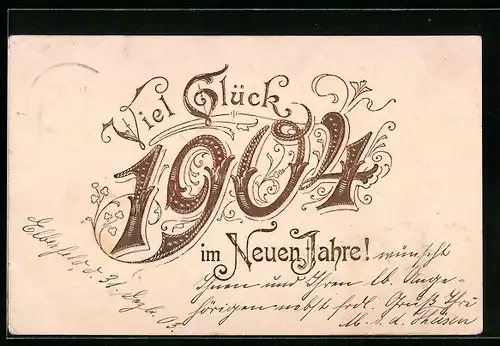 Viel Glück
1904
im Neuen Jahre! wünscht
Ihnen und Ihren lb. Ange-
hörigen nebst frdl. Gruß Ihr
Elberfeld d. 31. Dezb. 03.